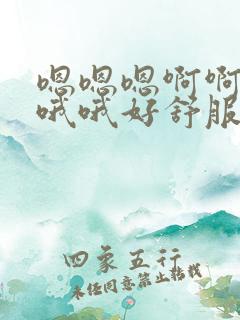 嗯嗯嗯啊啊
哦哦好舒服
四象五行
未经同意禁止转载